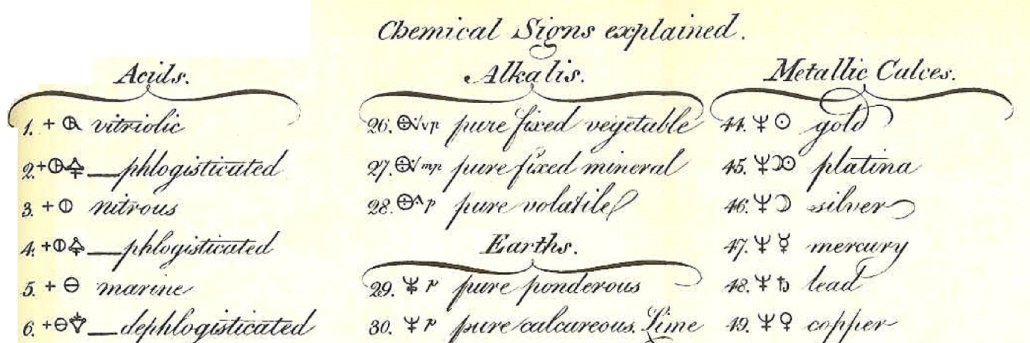 Chemical Signs explained.
Acids.
1. + vitriolic
2. + phlogisticated
3. + nitrous
4. + phlogisticated
5. + marine
6. + dephlogisticated
Alkalis.
26. vp pure fixed vegetable
27. mp pure fixed mineral
28. p pure volatile
Earths.
29. p pure ponderous
30. p pure calcareous. Lime
Metallic Calces.
44. 🜍 ☉ gold
45. ☽☉ platina
46. ☽ silver
47. ☿ mercury
48. ♄ lead
49. ♀ copper